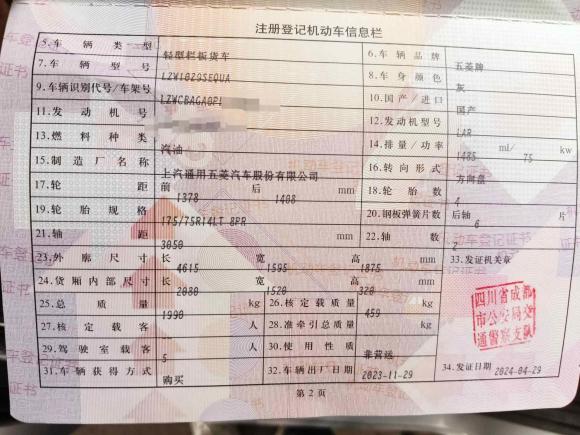 注册登记机动车信息栏
5.车辆类型 轻型栏板货车 6.车辆品牌 五菱牌
7.车辆型号 LZW1029SEQUA 8.车身颜色 灰
9.车辆识别代号/车架号 LZWCBAGA0P 10.国产/进口 国产
11.发动机号 12.发动机型号 LAR
13.燃料种类 汽油 14.排量/功率 1485 ml/ 75 kw
15.制造厂名称 上汽通用五菱汽车股份有限公司 16.转向形式 方向盘
17.轮距 前 1378 后 1408 mm 18.轮胎数 4
19.轮胎规格 175/75R14LT 8PR 20.钢板弹簧片数 后轴 6 片
21.轴距 3050 mm 22.轴数 2
23.外廓尺寸 长 4615 宽 1595 高 1875 mm 33.发证机关章
24.货厢内部尺寸 长 2080 宽 1520 高 320 mm
25.总质量 1990 kg 26.核定载质量 459 kg
27.核定载客 人 28.准牵引总质量 kg
29.驾驶室载客 5 人 30.使用性质 非营运
31.车辆获得方式 购买 32.车辆出厂日期 2023-11-29 34.发证日期 2024-04-29
四川省成都
市公安局交
通警察支队
第2页